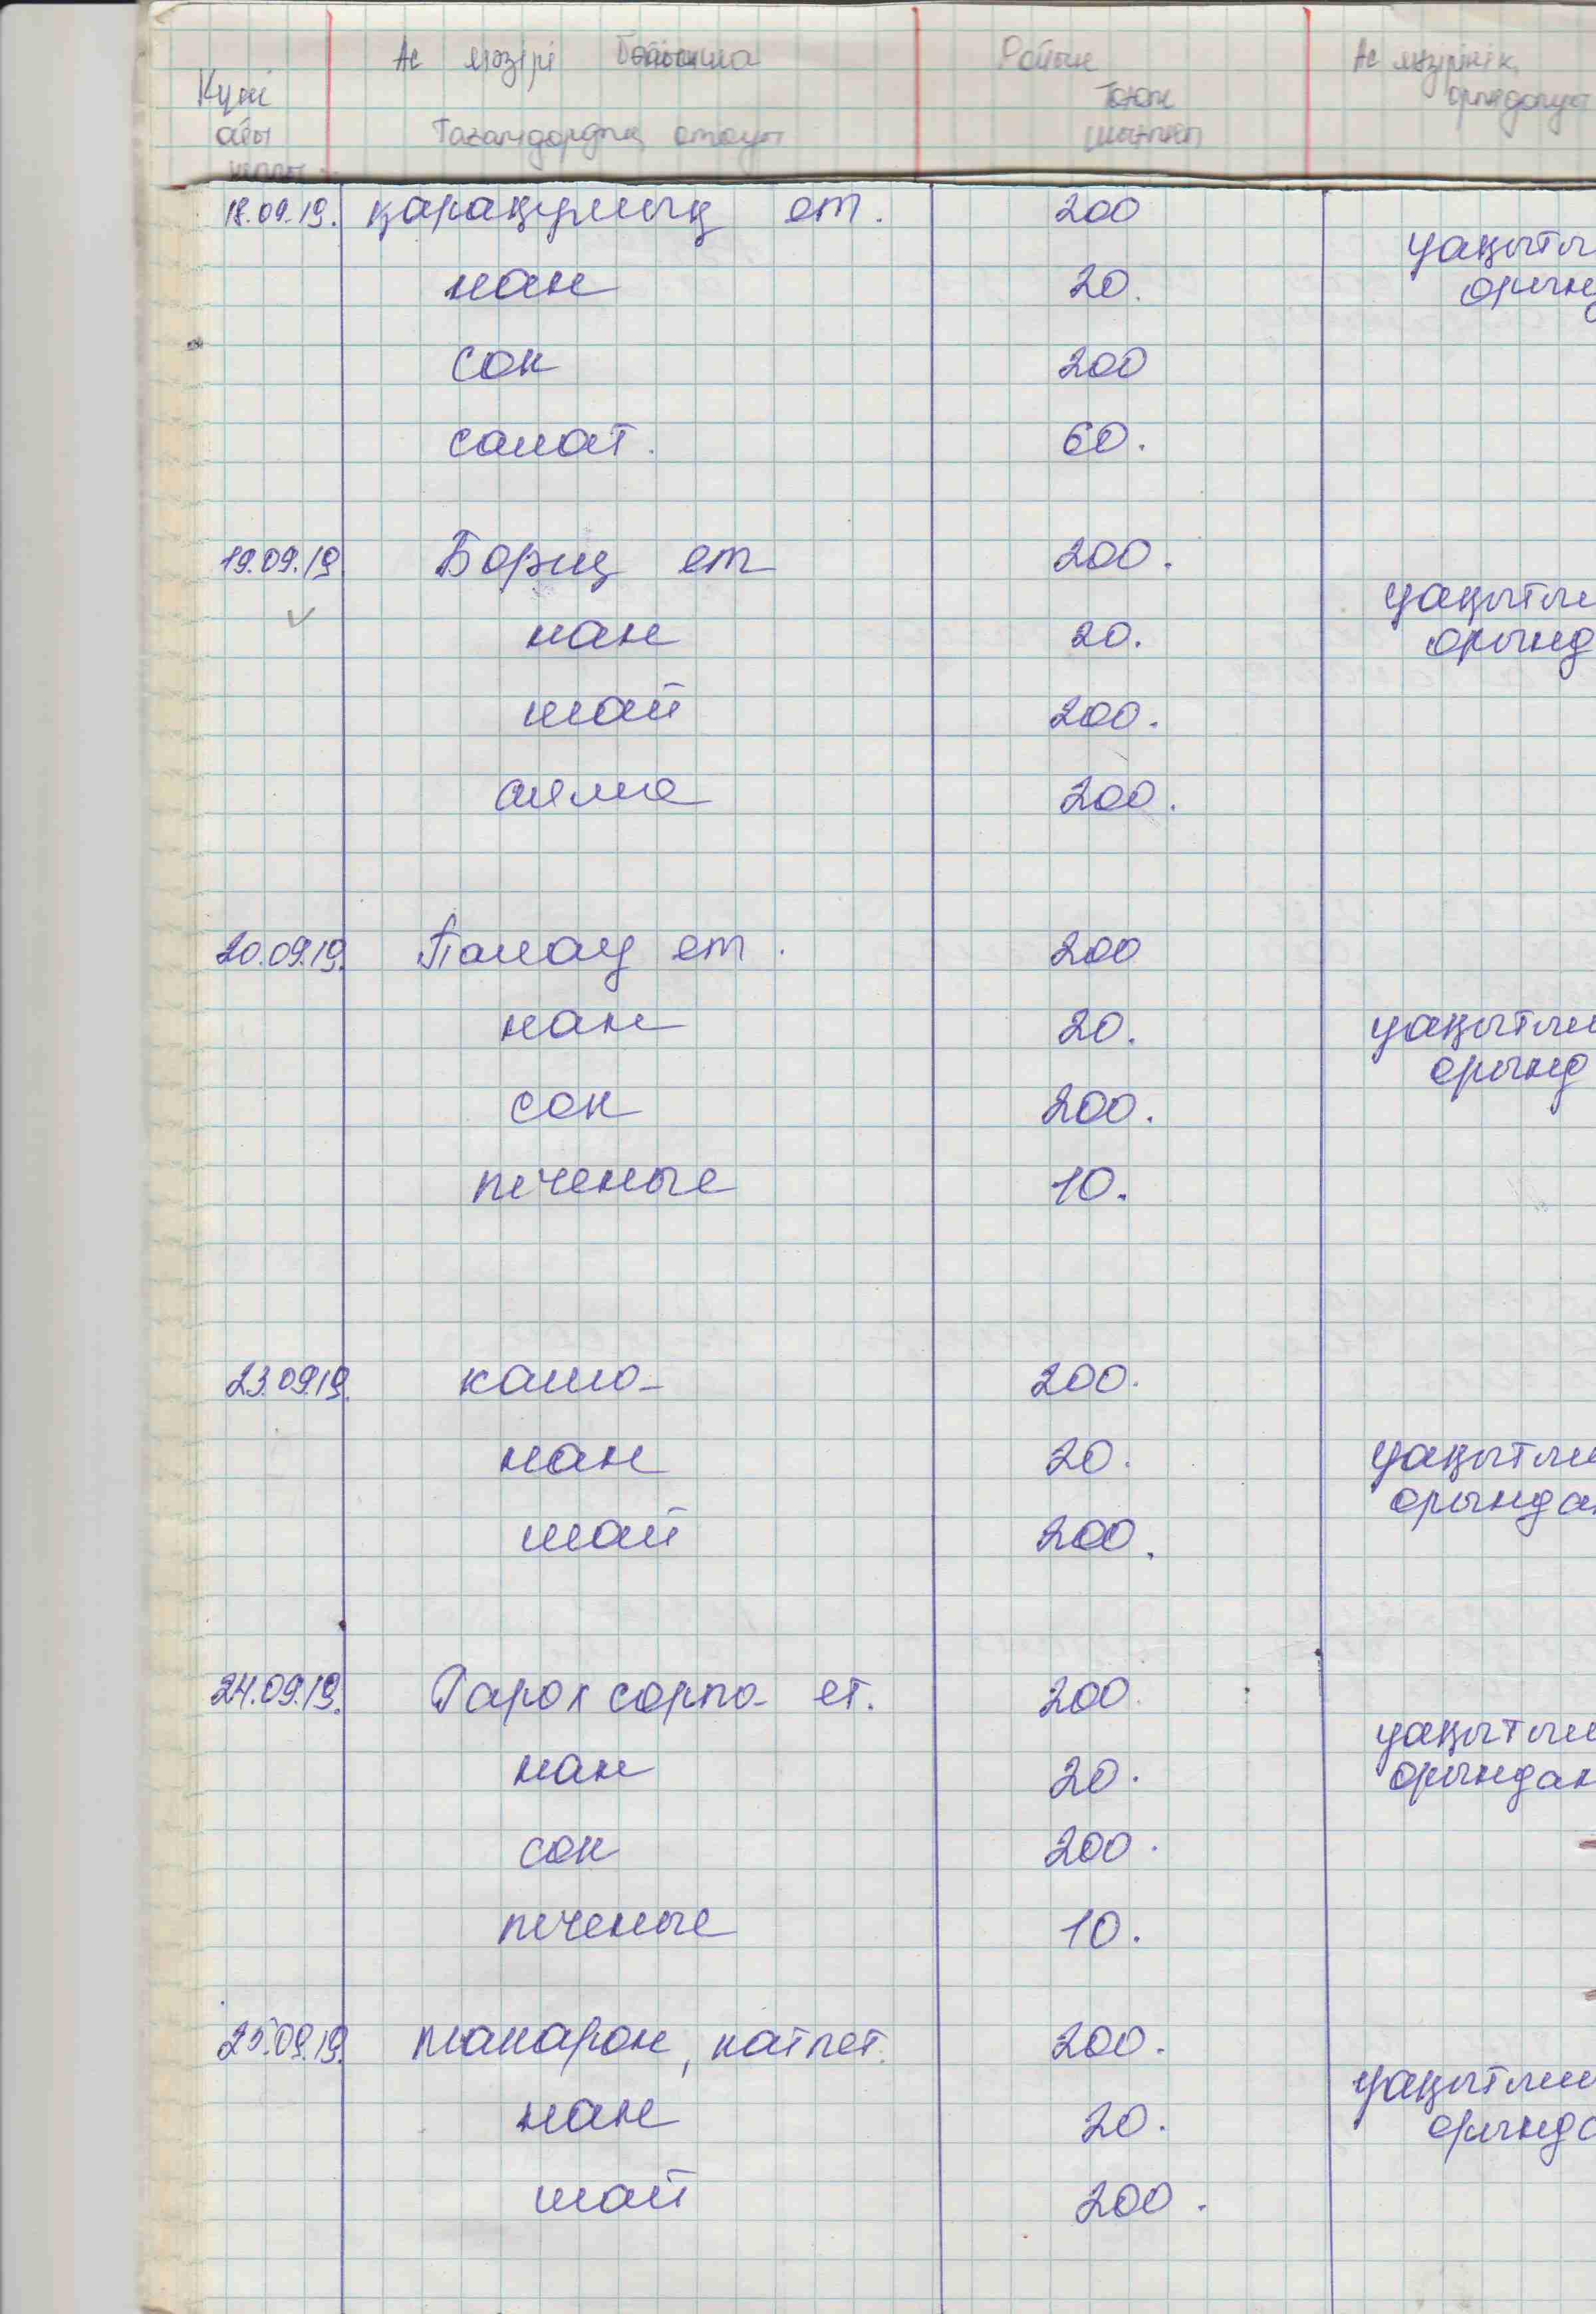 Ас мәзірі Бойынша
Күні
айы
Тағамдардың атауы
Дайын
тағам
шығымы
Ас мәзірінің
орындалуы
18.09.19. қарақұмық ет. 200
уақыты
орын
нан 20.
сок 200
салат. 60.
19.09.19 Борщ ет 200.
уақытын
орынд
нан 20.
шай 200.
алма 200.
20.09.19. Палау ет. 200
нан 20.
уақытын
орынд
сок 200.
печенье 10.
23.09.19. каша 200.
нан 20.
уақытын
орында
шай 200.
24.09.19. Горох сорпа ет. 200
уақытын
орындал
нан 20.
сок 200.
печенье 10.
25.09.19. макарон, катлет. 200.
уақытын
орында
нан 20.
шай 200.